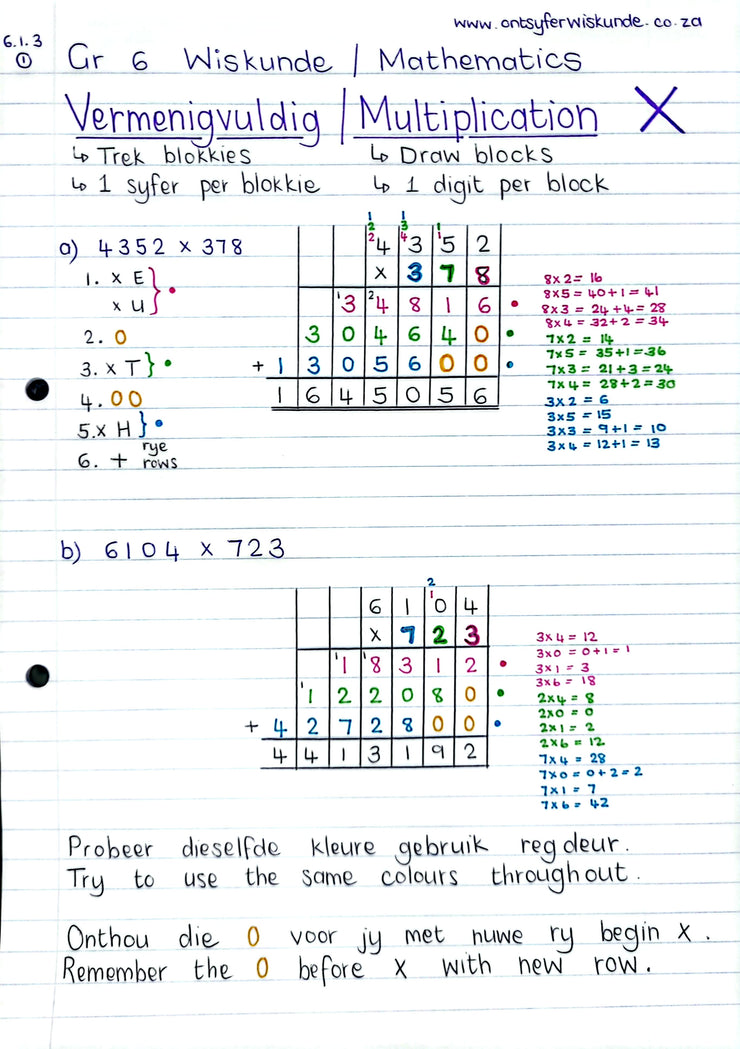 www.ontsyferwiskunde.co.za
6.1.3
①
Gr 6 Wiskunde / Mathematics
Vermenigvuldig / Multiplication X
↳ Trek blokkies ↳ Draw blocks
↳ 1 syfer per blokkie ↳ 1 digit per block
a) 4352 x 378
1. x E } •
x U
2. 0
3. x T } •
4. 00
5. x H } •
6. + rye
rows
1 1
2 3 1
2 4 1
4 3 5 2
x 3 7 8
1 3 2 4 8 1 6 •
3 0 4 6 4 0 •
+ 1 3 0 5 6 0 0 •
1 6 4 5 0 5 6
8x2= 16
8x5 = 40+1 = 41
8x3 = 24+4 = 28
8x4 = 32+2 = 34
7x2 = 14
7x5 = 35+1=36
7x3 = 21+3=24
7x4 = 28+2=30
3x2 = 6
3x5 = 15
3x3 = 9+1 = 10
3x4 = 12+1 = 13
b) 6104 x 723
2
1
6 1 0 4
x 7 2 3
1 1 1 8 3 1 2 •
1 1 2 2 0 8 0 •
+ 4 2 7 2 8 0 0 •
4 4 1 3 1 9 2
3x4 = 12
3x0 = 0+1 = 1
3x1 = 3
3x6 = 18
2x4 = 8
2x0 = 0
2x1 = 2
2x6 = 12
7x4 = 28
7x0 = 0+2=2
7x1 = 7
7x6 = 42
Probeer dieselfde kleure gebruik regdeur.
Try to use the same colours throughout.
Onthou die 0 voor jy met nuwe ry begin x.
Remember the 0 before x with new row.